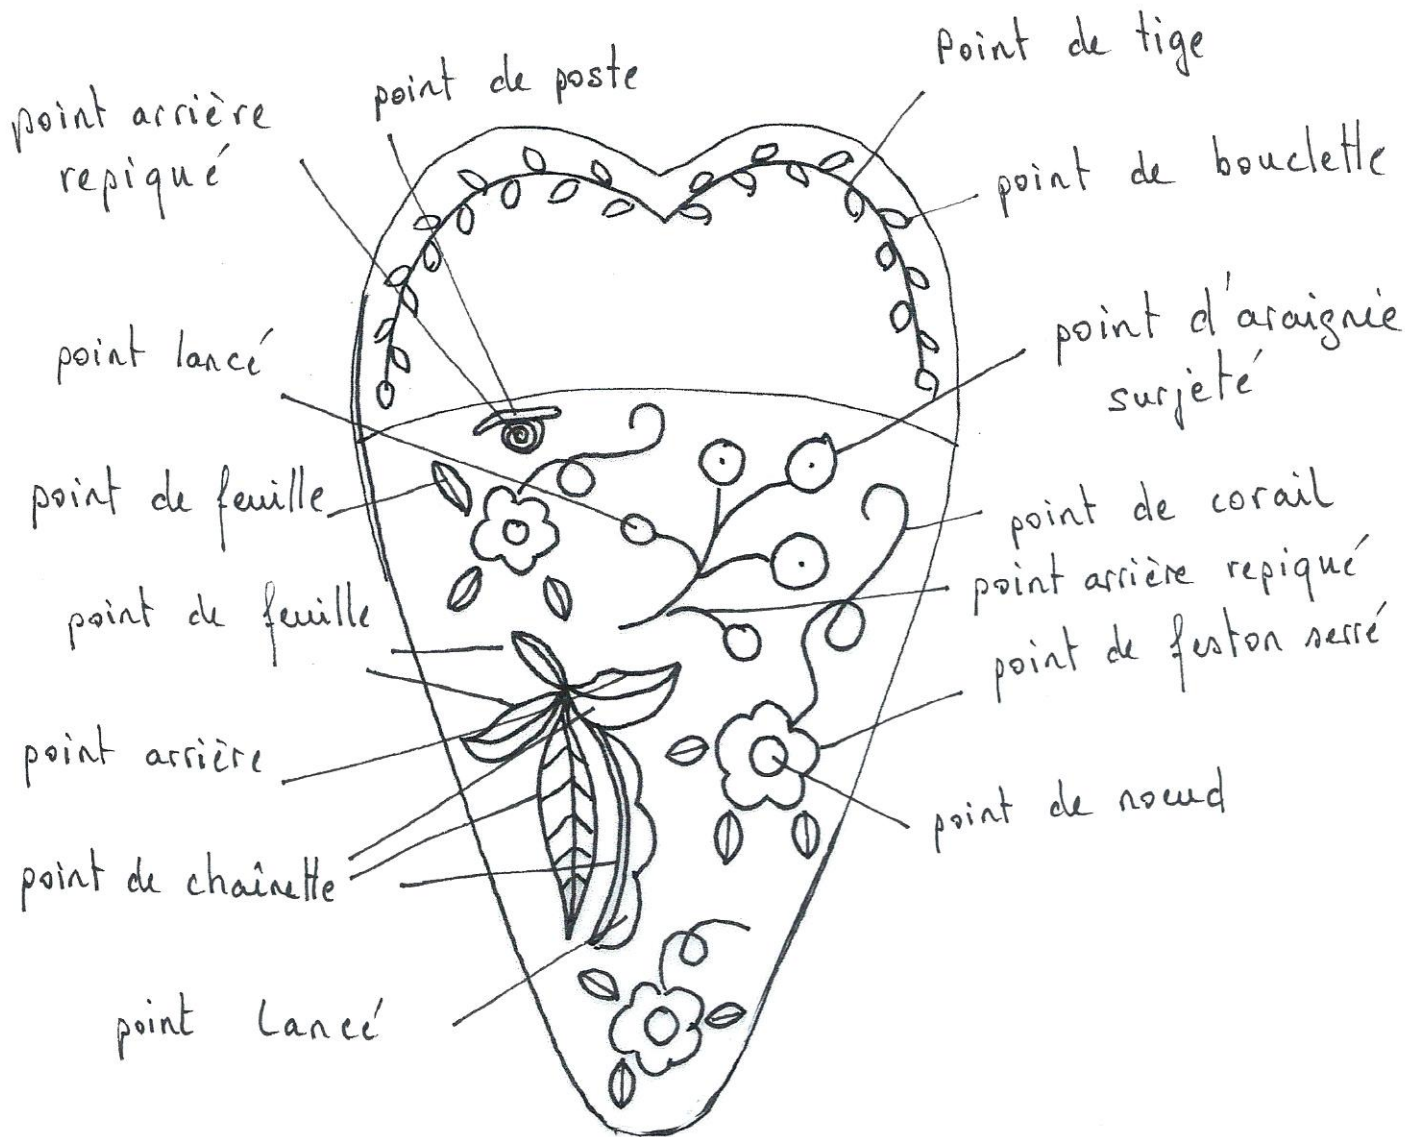 point arrière
repiqué
point de poste
Point de tige
point de bouclette
point lancé
point d'araignée
surjeté
point de feuille
point de corail
point arrière repiqué
point de feuille
point de feston serré
point arrière
point de nœud
point de chaînette
point Lancé